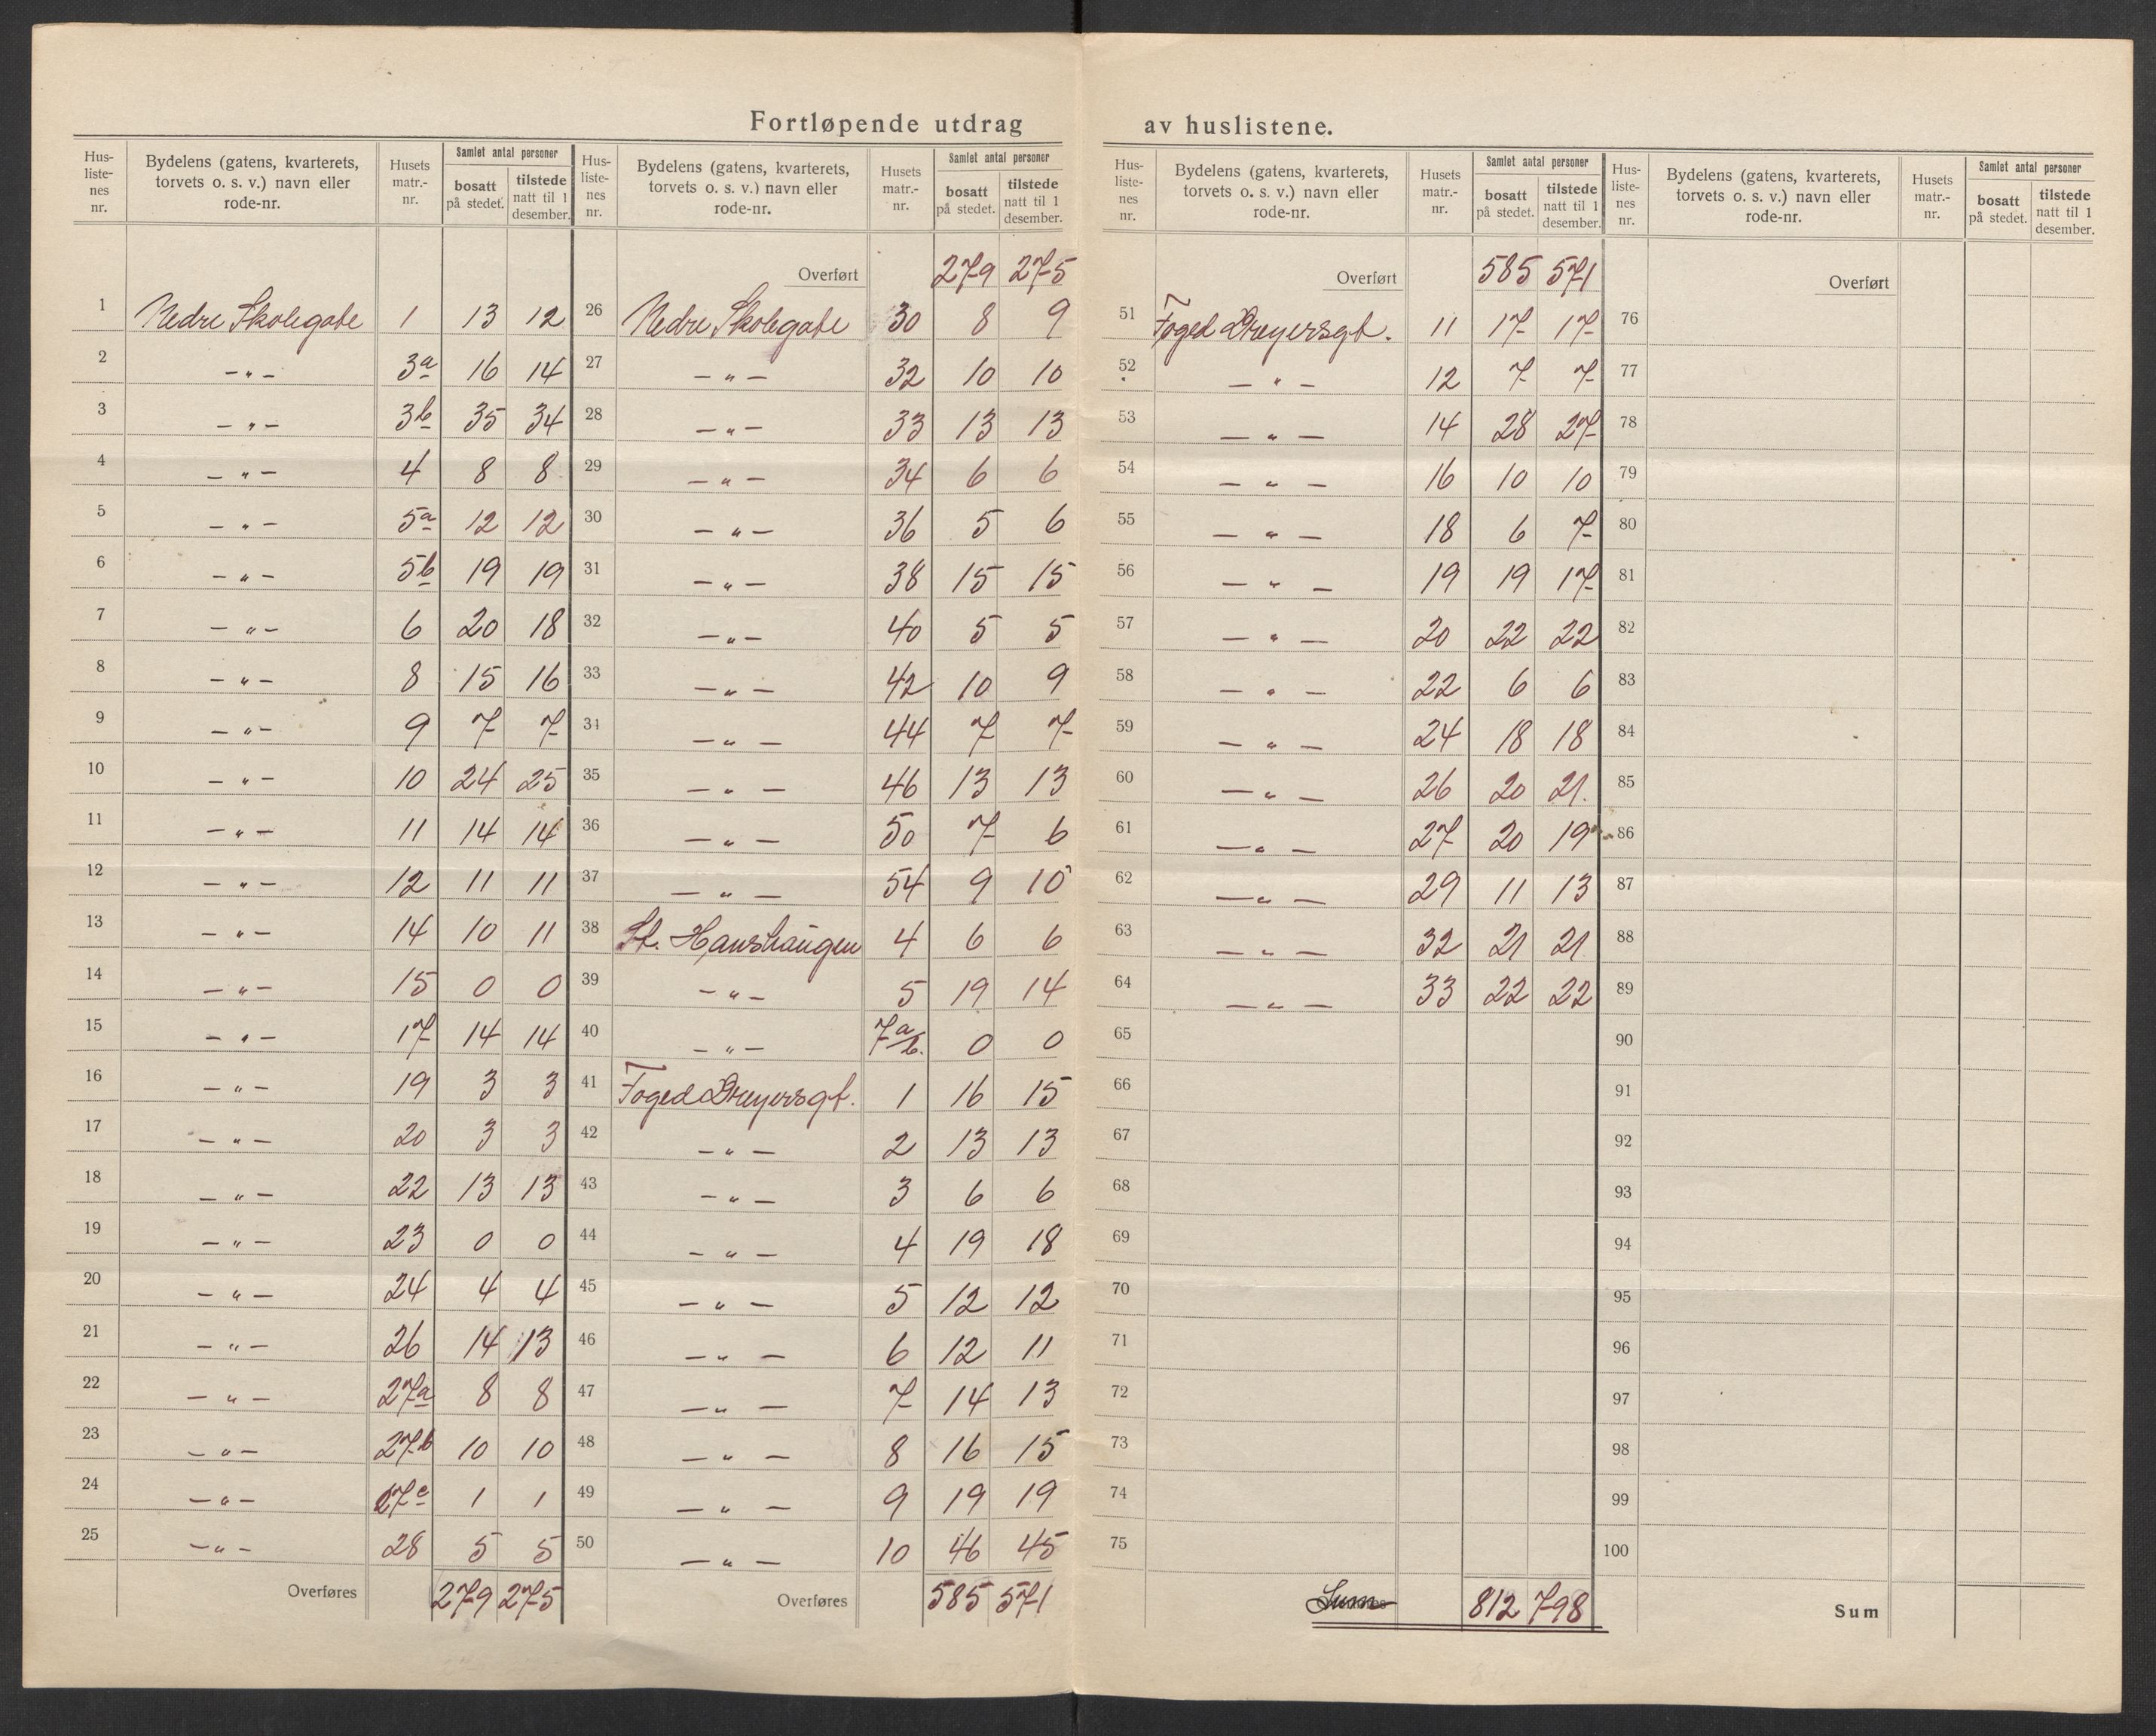 Fortløpende utdrag av huslistene.
Hus-listenes nr. | Bydelens (gatens, kvarterets, torvets o. s. v.) navn eller rode-nr. | Husets matr.-nr. | Samlet antal personer | bosatt på stedet. | tilstede natt til 1 desember.
1 Nedre Skolegate 1 13 12
2 – " – 3a 16 14
3 – " – 3b 35 34
4 – " – 4 8 8
5 – " – 5a 12 12
6 – " – 5b 19 19
7 – " – 6 20 18
8 – " – 8 15 16
9 – " – 9 7 7
10 – " – 10 24 25
11 – " – 11 14 14
12 – " – 12 11 11
13 – " – 14 10 11
14 – " – 15 0 0
15 – " – 17 14 14
16 – " – 19 3 3
17 – " – 20 3 3
18 – " – 22 13 13
19 – " – 23 0 0
20 – " – 24 4 4
21 – " – 26 14 13
22 – " – 27a 8 8
23 – " – 27b 10 10
24 – " – 27c 1 1
25 – " – 28 5 5
Overføres 279 275
Hus-listenes nr. | Bydelens (gatens, kvarterets, torvets o. s. v.) navn eller rode-nr. | Husets matr.-nr. | Samlet antal personer | bosatt på stedet. | tilstede natt til 1 desember.
Overført 279 275
26 Nedre Skolegate 30 8 9
27 – " – 32 10 10
28 – " – 33 13 13
29 – " – 34 6 6
30 – " – 36 5 6
31 – " – 38 15 15
32 – " – 40 5 5
33 – " – 42 10 9
34 – " – 44 7 7
35 – " – 46 13 13
36 – " – 50 7 6
37 – " – 54 9 10
38 St. Hanshaugen 4 6 6
39 – " – 5 19 14
40 – " – 7a/b. 0 0
41 Foged Dreyersgt. 1 16 15
42 – " – 2 13 13
43 – " – 3 6 6
44 – " – 4 19 18
45 – " – 5 12 12
46 – " – 6 12 11
47 – " – 7 14 13
48 – " – 8 16 15
49 – " – 9 19 19
50 – " – 10 46 45
Overføres 585 571
Hus-listenes nr. | Bydelens (gatens, kvarterets, torvets o. s. v.) navn eller rode-nr. | Husets matr.-nr. | Samlet antal personer | bosatt på stedet. | tilstede natt til 1 desember.
Overført 585 571
51 Foged Dreyersgt. 11 17 17
52 – " – 12 7 7
53 – " – 14 28 27
54 – " – 16 10 10
55 – " – 18 6 7
56 – " – 19 19 17
57 – " – 20 22 22
58 – " – 22 6 6
59 – " – 24 18 18
60 – " – 26 20 21.
61 – " – 27 20 19
62 – " – 29 11 13
63 – " – 32 21 21
64 – " – 33 22 22
65
66
67
68
69
70
71
72
73
74
75
Sum 812 798
Hus-listenes nr. | Bydelens (gatens, kvarterets, torvets o. s. v.) navn eller rode-nr. | Husets matr.-nr. | Samlet antal personer | bosatt på stedet. | tilstede natt til 1 desember.
Overført
76
77
78
79
80
81
82
83
84
85
86
87
88
89
90
91
92
93
94
95
96
97
98
99
100
Sum